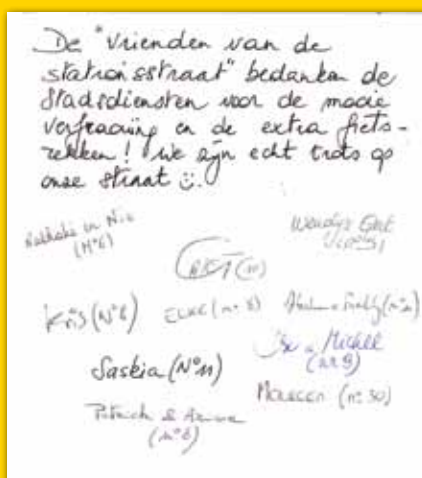 De "vrienden van de
stationsstraat" bedanken de
Stadsdiensten voor de mooie
verfraaiing en de extra fiets-
rekken! We zijn echt trots op
onze straat
Nathalie en Nic
(N°6)
Kris (N°6)
ELKE (n° 8)
Saskia (N°11)
Michel
(nr 9)
Maureen (n° 30)
Patrick &
(n°6)